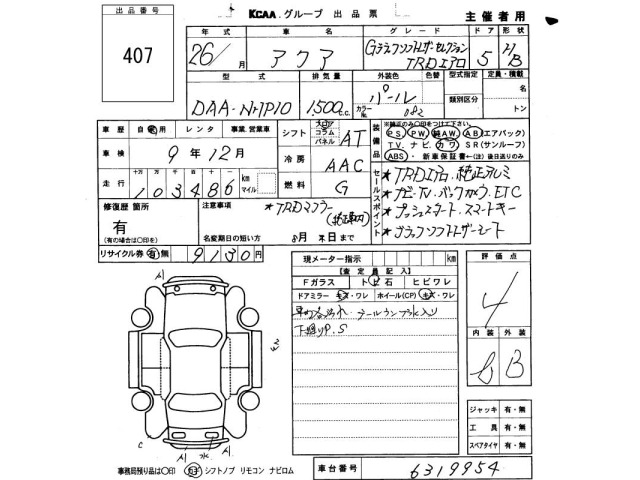 出品番号
407
KCAA.グループ 出品票
主催者用
年式 車名 グレード ドア 形状
26/月 アクア Gブラックソフトレザーセレクション TRDエアロ 5 H/B
型式 排気量 外装色 色替 型式指定 定員・積載
DAA-NHP10 1500c.c. パール カラーNo. 082 類別区分 名 トン
車歴 自家用 レンタ 事業、営業車
シフト フロア コラム パネル AT
車検 9年12月
冷房 AAC
走行 103486 km マイル
燃料 G
装備品 ※純正のみ〇印をつけて下さい。
PS. PW. 純AW. AB(エアバック)
TV. ナビ. カワ SR(サンルーフ)
ABS. 新車保証書←(注)後日送りのみ
セールスポイント
★TRDエアロ、純正アルミ
★ナビ・TV、バックカメラ、ETC
★プッシュスタート、スマートキー
★ブラックソフトレザーシート
修復歴 箇所
有
(有の場合は〇印を)
注意事項
★TRDマフラー
名変期日の短い方 8月末日まで
リサイクル券 有 無 9130円
現メーター指示 km
【査定員記入】
Fガラス トビ石 ヒビワレ
ドアミラー キズ・ワレ ホイール(CP) キズ・ワレ
テールランプ水入り
下廻りP.S
評価点
4
内装 外装
B
ジャッキ 有・無
工具 有・無
スペアタイヤ 有・無
事務局預り品は〇印 カギ シフトノブ リモコン ナビロム
車台番号 6319954